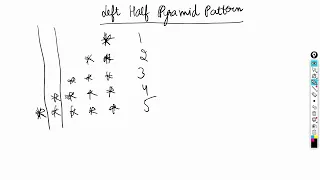 Left Half Pyramid Pattern
* 1
* * 2
* * * 3
* * * 4
* * * * * 5